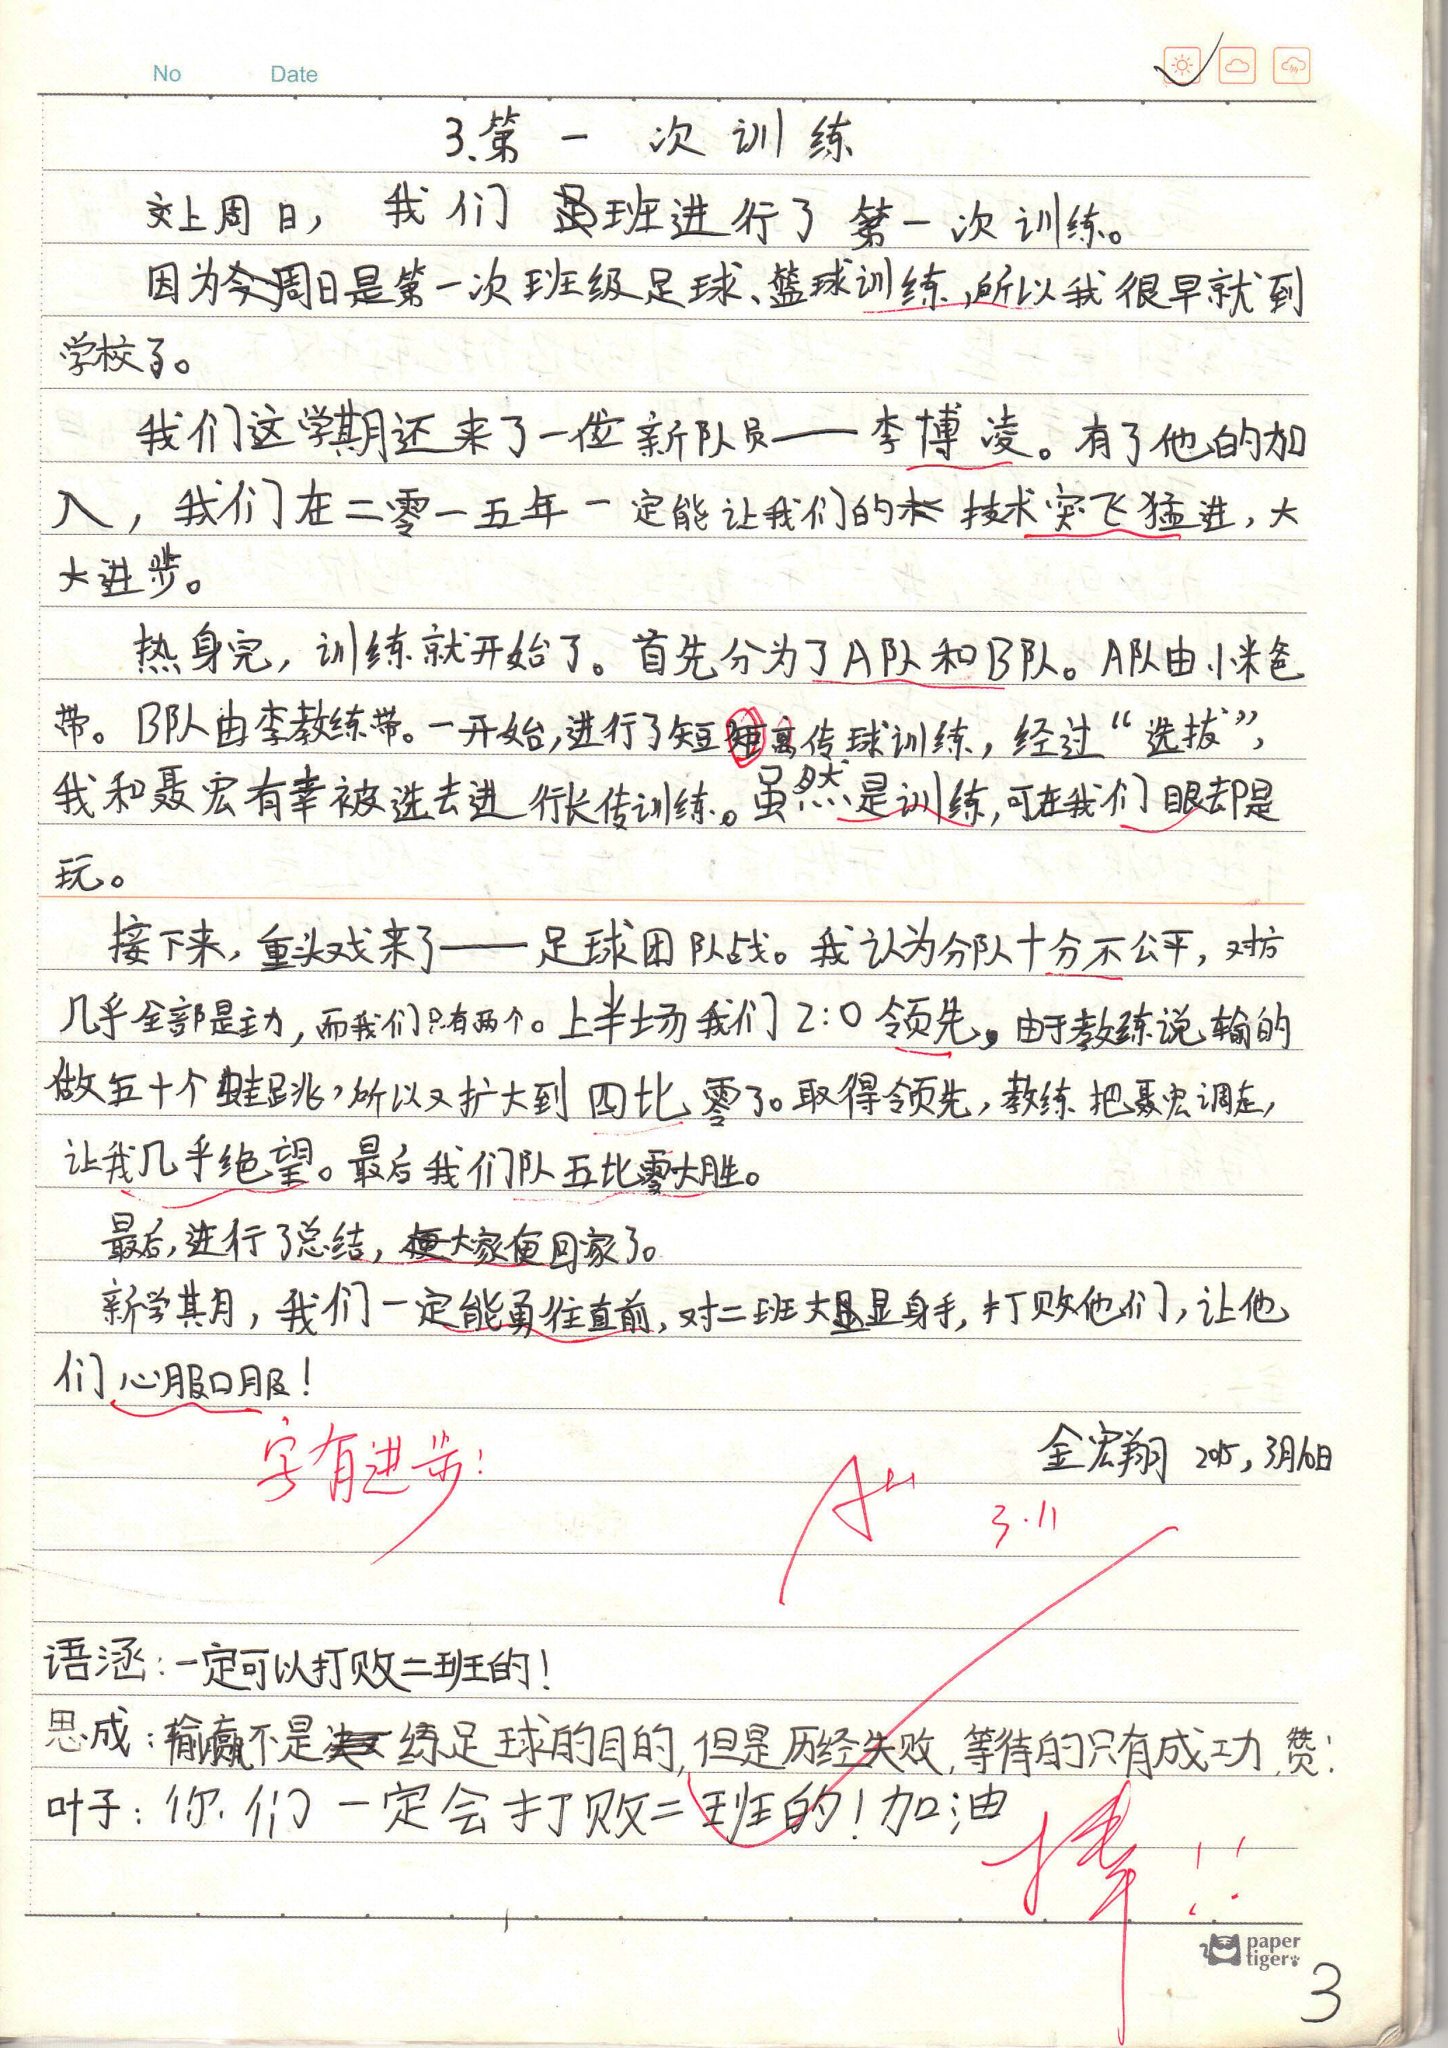 No Date
3.第一次训练
上周日，我们班进行了第一次训练。
因为周日是第一次班级足球、篮球训练，所以我很早就到
学校了。
我们这学期还来了一位新队员——李博凌。有了他的加
入，我们在二零一五年一定能让我们的技术突飞猛进，大
大进步。
热身完，训练就开始了。首先分为了A队和B队。A队由小米爸
带。B队由李教练带。一开始，进行了短距离传球训练，经过“选拔”，
我和聂宏有幸被选去进行长传训练。虽然是训练，可在我们眼却是
玩。
接下来，重头戏来了——足球团队战。我认为分队十分不公平，对方
几乎全部是主力，而我们只有两个。上半场我们2:0领先。由于教练说输的
做五十个蛙跳，所以又扩大到四比零了。取得领先，教练把聂宏调走，
让我几乎绝望。最后我们队五比零大胜。
最后，进行了总结，大家便回家了。
新学期，我们一定能勇往直前，对二班大显身手，打败他们，让他
们心服口服！
字有进步！
金宏翔 2015，3月10日
A++
3.11
语涵：一定可以打败二班的！
思成：输赢不是练足球的目的，但是历经失败，等待的只有成功，赞！
叶子：你们一定会打败二班的！加油
棒！！
paper
tiger
3